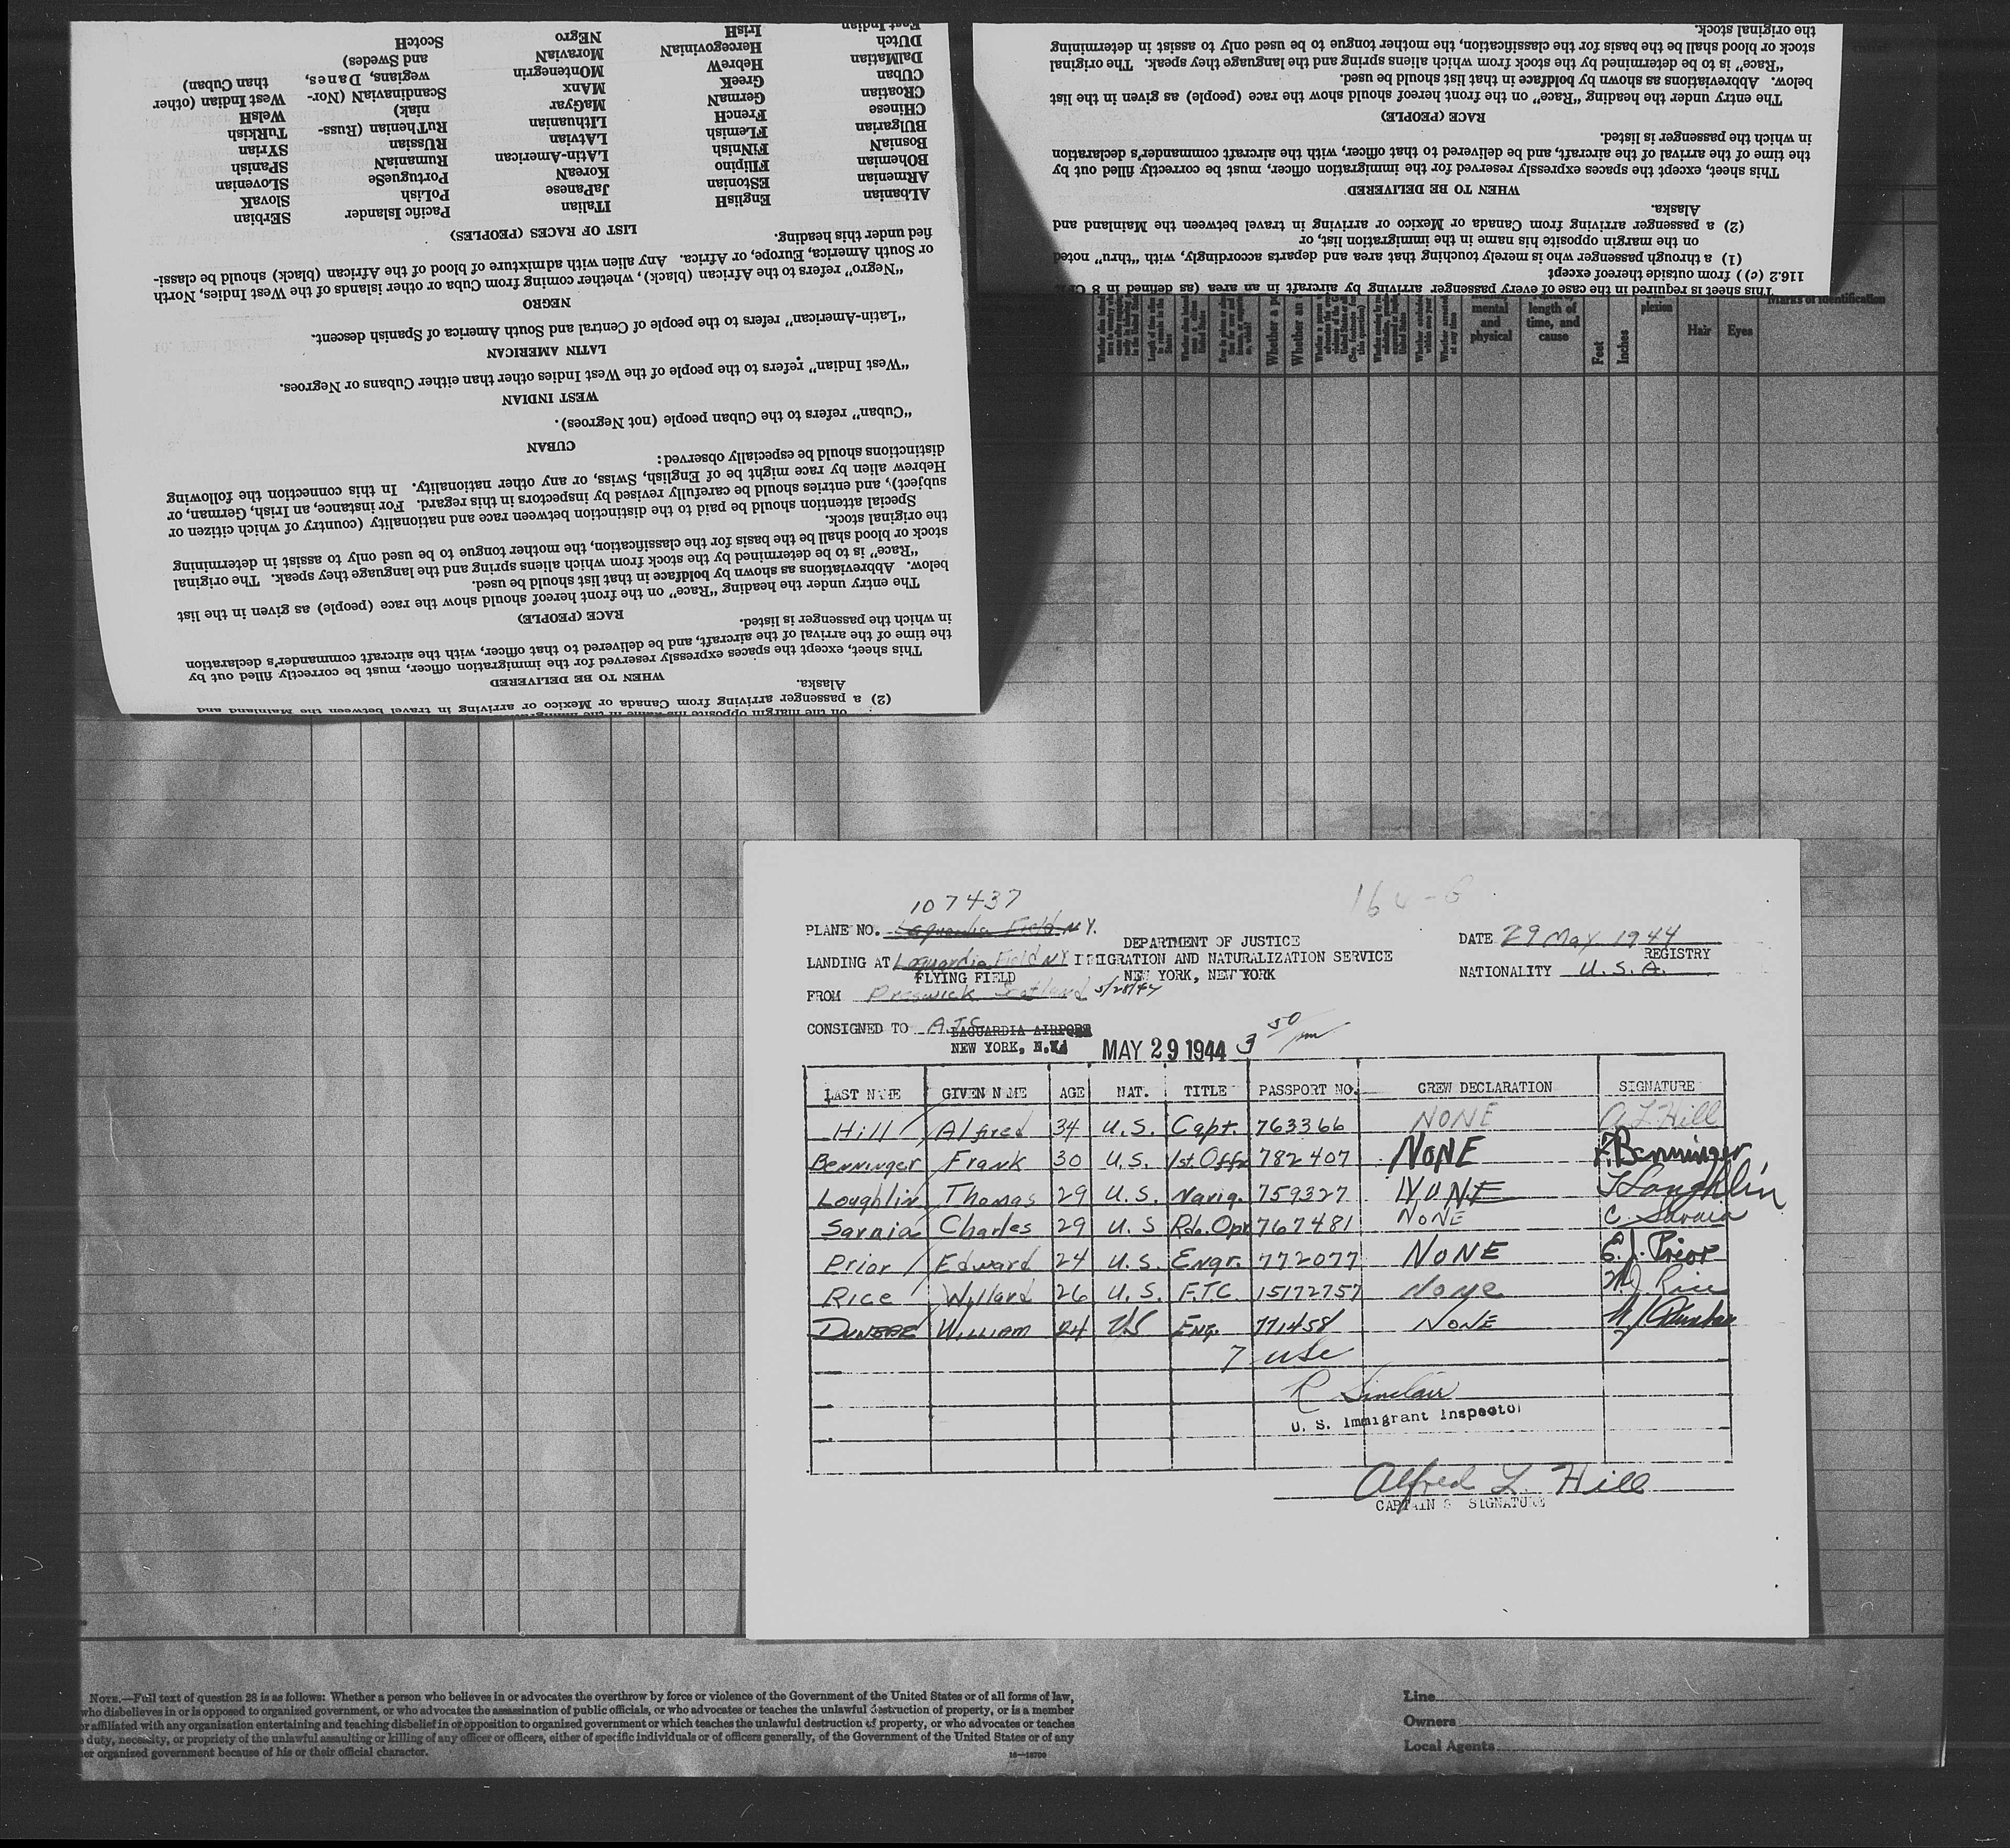 East Indian IrisH
DUtch HercegoviniaN NEgro ScotcH
DalMatian HebreW MoraviaN and Swedes)
CUban GreeK MOntenegrin wegians, Danes, than Cuban)
CRoatian GermaN MAnx ScandinaviaN (Nor- West Indian (other
CHinese FrencH MaGyar niak) WelsH
BUlgarian FLemish LIthuanian RuThenian (Russ- TuRkish
BosniaN FINnish LAtvian RUssian SYrian
BOhemian FIlipino LAtin-American RumaniaN SPanish
ARmenian EStonian KoreaN PortugueSe SLOvenian
ALbanian EnglisH JaPanese PoLish SlovaK
ITalian Pacific Islander SErbian
LIST OF RACES (PEOPLES)
fied under this heading.
or South America, Europe, or Africa. Any alien with admixture of blood of the African (black) should be classi-
"Negro" refers to the African (black), whether coming from Cuba or other islands of the West Indies, North
NEGRO
"Latin-American" refers to the people of Central and South America of Spanish descent.
LATIN AMERICAN
"West Indian" refers to the people of the West Indies other than either Cubans or Negroes.
WEST INDIAN
"Cuban" refers to the Cuban people (not Negroes).
CUBAN
distinctions should be especially observed:
Hebrew alien by race might be of English, Swiss, or any other nationality. In this connection the following
subject), and entries should be carefully revised by inspectors in this regard. For instance, an Irish, German, or
Special attention should be paid to the distinction between race and nationality (country of which citizen or
the original stock.
stock or blood shall be the basis for the classification, the mother tongue to be used only to assist in determining
"Race" is to be determined by the stock from which aliens spring and the language they speak. The original
below. Abbreviations as shown by boldface in that list should be used.
The entry under the heading "Race" on the front hereof should show the race (people) as given in the list
RACE (PEOPLE)
in which the passenger is listed.
the time of the arrival of the aircraft, and be delivered to that officer, with the aircraft commander's declaration
This sheet, except the spaces expressly reserved for the immigration officer, must be correctly filled out by
WHEN TO BE DELIVERED
Alaska.
(2) a passenger arriving from Canada or Mexico or arriving in travel between the Mainland and
on the margin opposite his name in the immigration
the original stock.
stock or blood shall be the basis for the classification, the mother tongue to be used only to assist in determining
"Race" is to be determined by the stock from which aliens spring and the language they speak. The original
below. Abbreviations as shown by boldface in that list should be used.
The entry under the heading "Race" on the front hereof should show the race (people) as given in the list
RACE (PEOPLE)
in which the passenger is listed.
the time of the arrival of the aircraft, and be delivered to that officer, with the aircraft commander's declaration
This sheet, except the spaces expressly reserved for the immigration officer, must be correctly filled out by
WHEN TO BE DELIVERED
Alaska.
(2) a passenger arriving from Canada or Mexico or arriving in travel between the Mainland and
on the margin opposite his name in the immigration list, or
(1) a through passenger who is merely touching that area and departs accordingly, with "thru" noted
116.2 (c)) from outside thereof except
This sheet is required in the case of every passenger arriving by aircraft in an area (as defined in 8 CFR
Marks of identification
mental and physical
length of time, and cause
Feet Inches
plexion
Hair Eyes
107437
164-8
PLANE NO. Laguardia Field N.Y.
DEPARTMENT OF JUSTICE
DATE 29 May 1944
LANDING AT Laguardia Field NY IMIGRATION AND NATURALIZATION SERVICE
REGISTRY
FLYING FIELD NEW YORK, NEW YORK
NATIONALITY U.S.A.
FROM Preswick Scotland 5/28/44
CONSIGNED TO ATC LAGUARDIA AIRPORT
NEW YORK, N.Y. MAY 29 1944 3 50 pm
LAST NAME GIVEN NAME AGE NAT. TITLE PASSPORT NO. CREW DECLARATION SIGNATURE
Hill Alfred 34 U.S. Capt. 763366 NONE A L Hill
Benninger Frank 30 U.S. 1st Offr 782407 NONE F. Benninger
Loughlin Thomas 29 U.S. Navig. 759327 NONE T Loughlin
Sarnia Charles 29 U.S Rdo. Opr 767481 NONE C. Sarnia
Prior Edward 24 U.S. Engr. 772077 NONE E.J. Prior
Rice Willard 26 U.S. F.T.C. 15172757 None W.J. Rice
DUNBAR WILLIAM 24 US ENG. 771458 NONE W J Dunbar
7 usc
R Sinclair
U. S. Immigrant Inspector
Alfred L. Hill
CAPTAIN S SIGNATURE
NOTE.—Full text of question 28 is as follows: Whether a person who believes in or advocates the overthrow by force or violence of the Government of the United States or of all forms of law,
who disbelieves in or is opposed to organized government, or who advocates the assassination of public officials, or who advocates or teaches the unlawful destruction of property, or is a member
or affiliated with any organization entertaining and teaching disbelief in or opposition to organized government or which teaches the unlawful destruction of property, or who advocates or teaches
duty, necessity, or propriety of the unlawful assaulting or killing of any officer or officers, either of specific individuals or of officers generally, of the Government of the United States or of any
er organized government because of his or their official character.
16—18700
Line
Owners
Local Agents